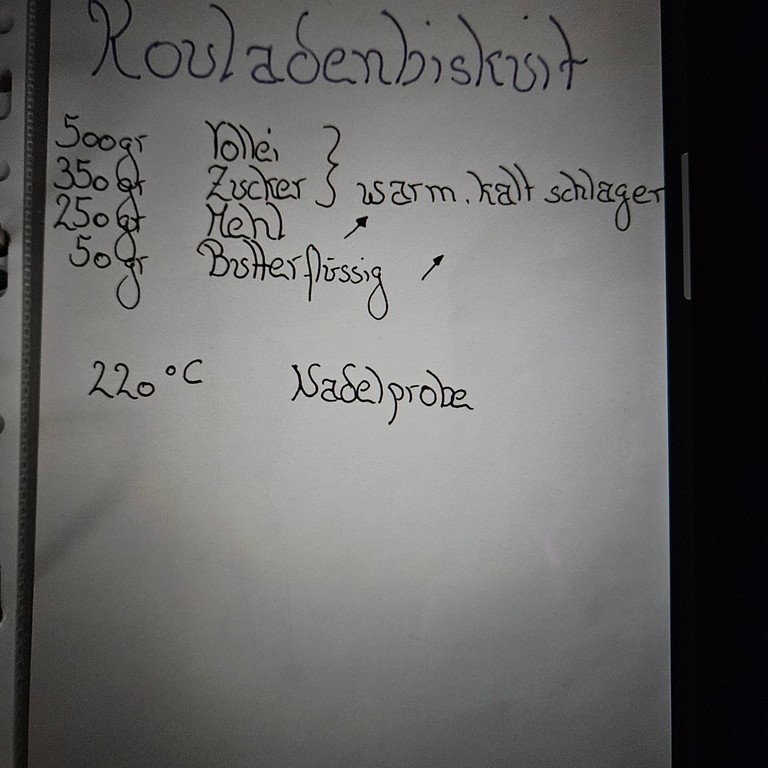 Rouladenbiskuit
500gr Vollei
350gr Zucker } warm. kalt schlagen
250gr Mehl ↗
50gr Butter flüssig ↗
220°C Nadelprobe